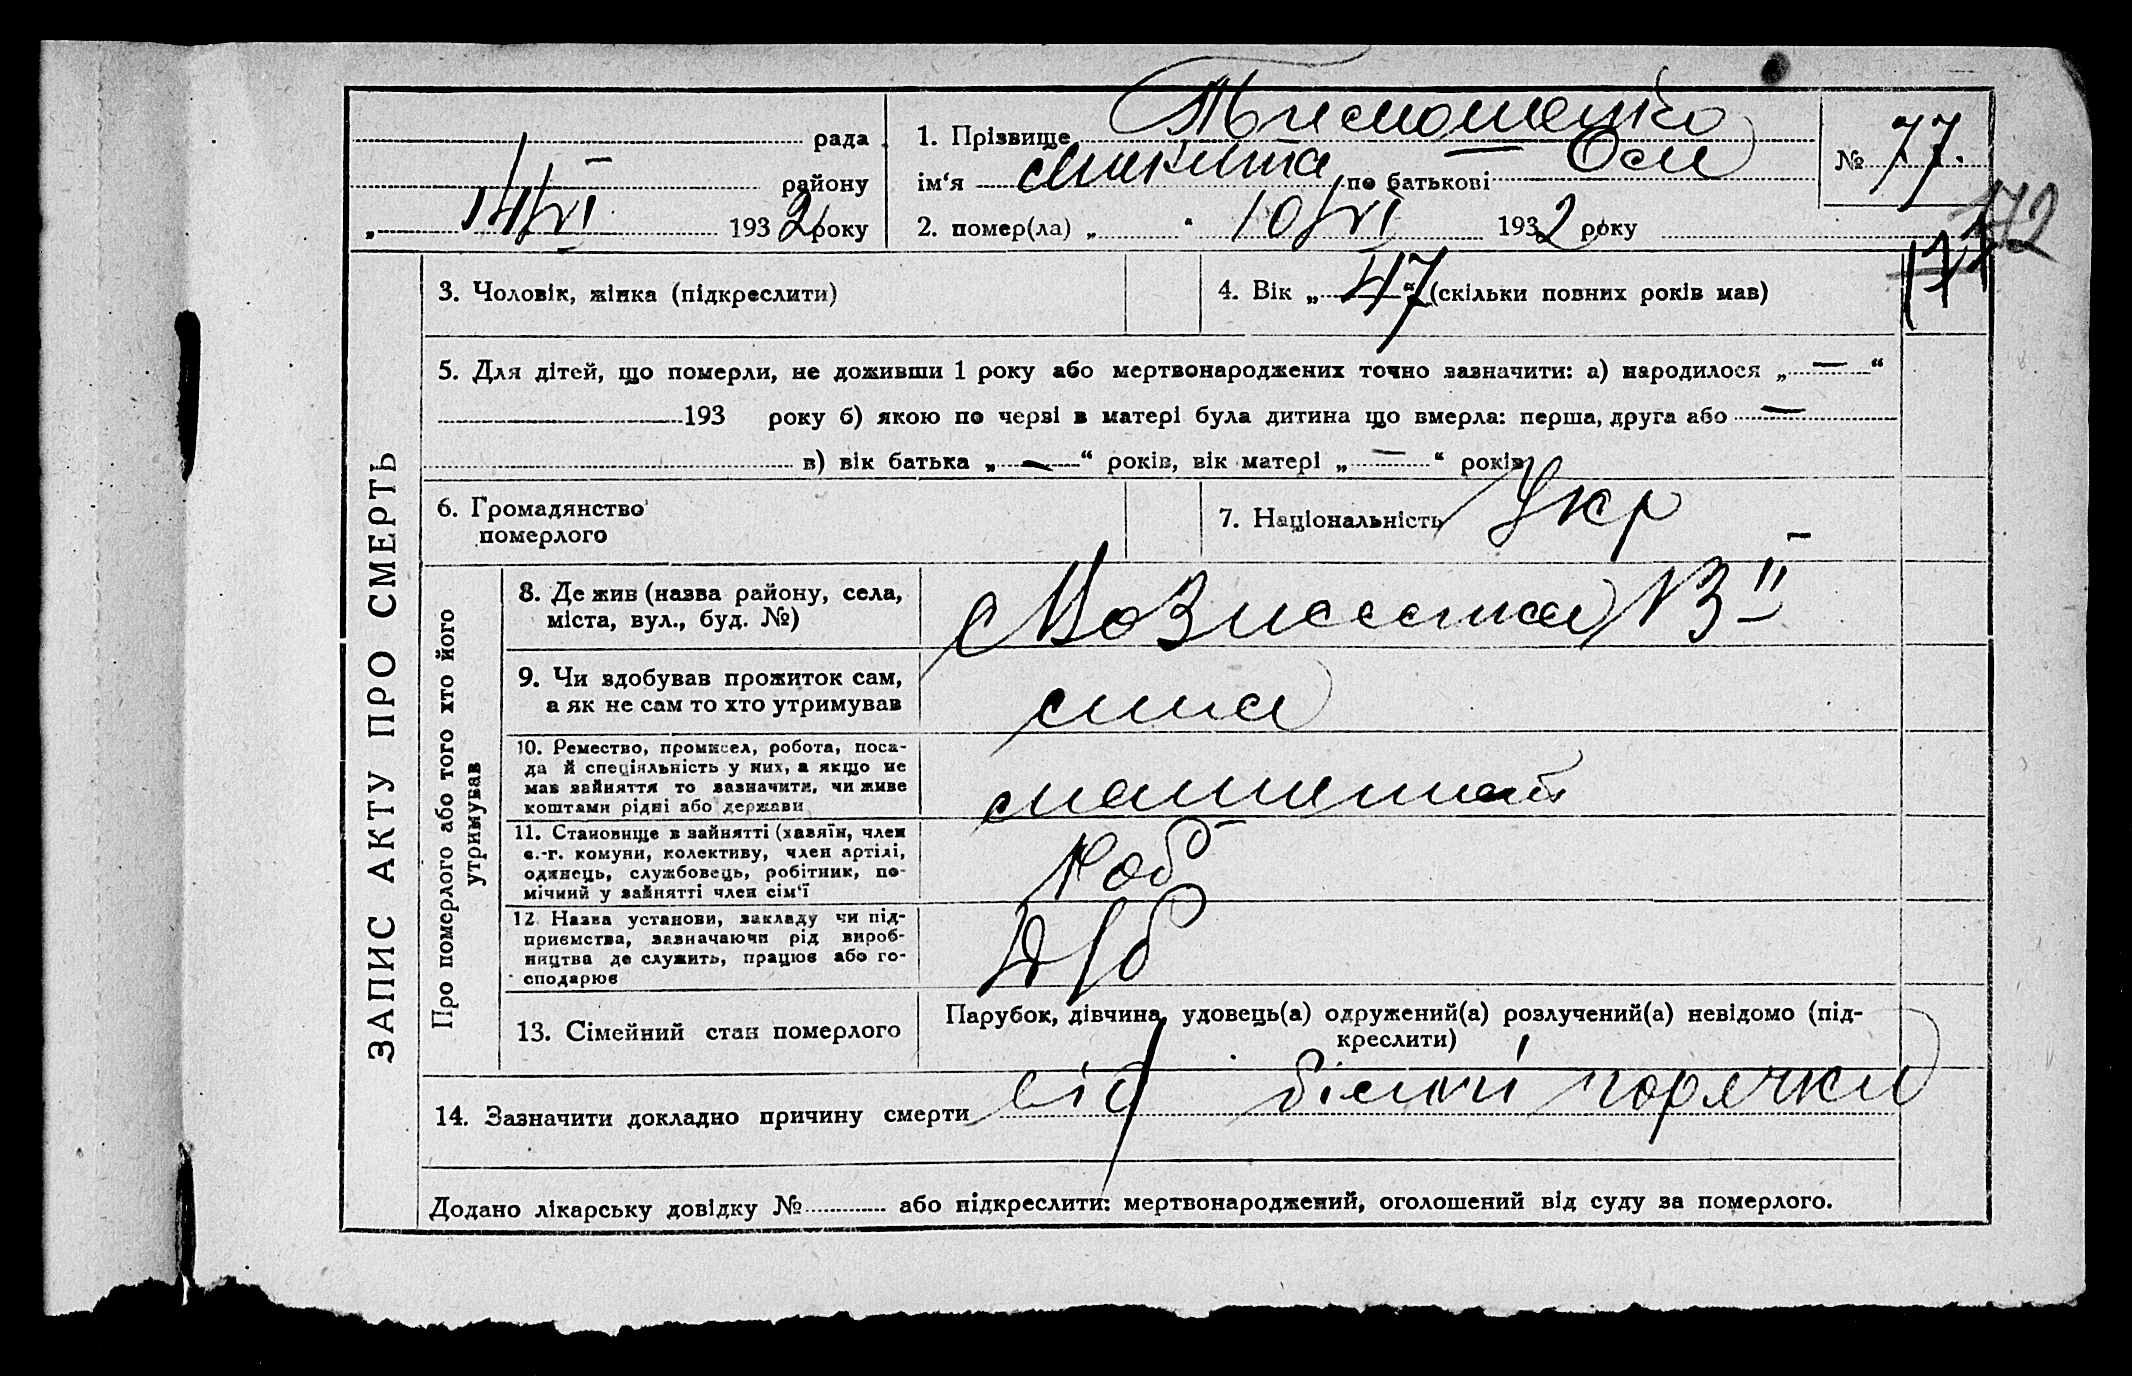 ЗАПИС АКТУ ПРО СМЕРТЬ
рада
району
„ 14/VI 1932 року
1. Прізвище Тимошенко
ім‘я Микита по батькові Оси
2. помер(ла) „ “ 10/VI 1932 року
№ 77.
172
3. Чоловік, жінка (підкреслити)
4. Вік „ 47 “ (скільки повних років мав)
5. Для дітей, що померли, не доживши 1 року або мертвонароджених точно зазначити: а) народилося „ — “
193 року б) якою по черзі в матері була дитина що вмерла: перша, друга або —
в) вік батька „ — “ років, вік матері „ — “ років
6. Громадянство
померлого
7. Національність Укр
Про померлого або того хто його
утримував
8. Де жив (назва району, села,
міста, вул., буд. №)
9. Чи здобував прожиток сам,
а як не сам то хто утримував
10. Ремество, промисел, робота, поса-
да й спеціяльність у них, а якщо не
мав зайняття то зазначити, чи живе
коштами рідні або держави
11. Становище в зайнятті (хазяїн, член
с.-г. комуни, колективу, член артілі,
одинець, службовець, робітник, по-
мічний у зайнятті член сім‘ї
Роб
12 Назва установи, закладу чи під-
приємства, зазначаючи рід вироб-
ництва де служить, працює або го-
сподарює
13. Сімейний стан померлого
Парубок, дівчина, удовець(а) одружений(а) розлучений(а) невідомо (під-
креслити)
14. Зазначити докладно причину смерти від білої горячки
Додано лікарську довідку № або підкреслити: мертвонароджений, оголошений від суду за померлого.